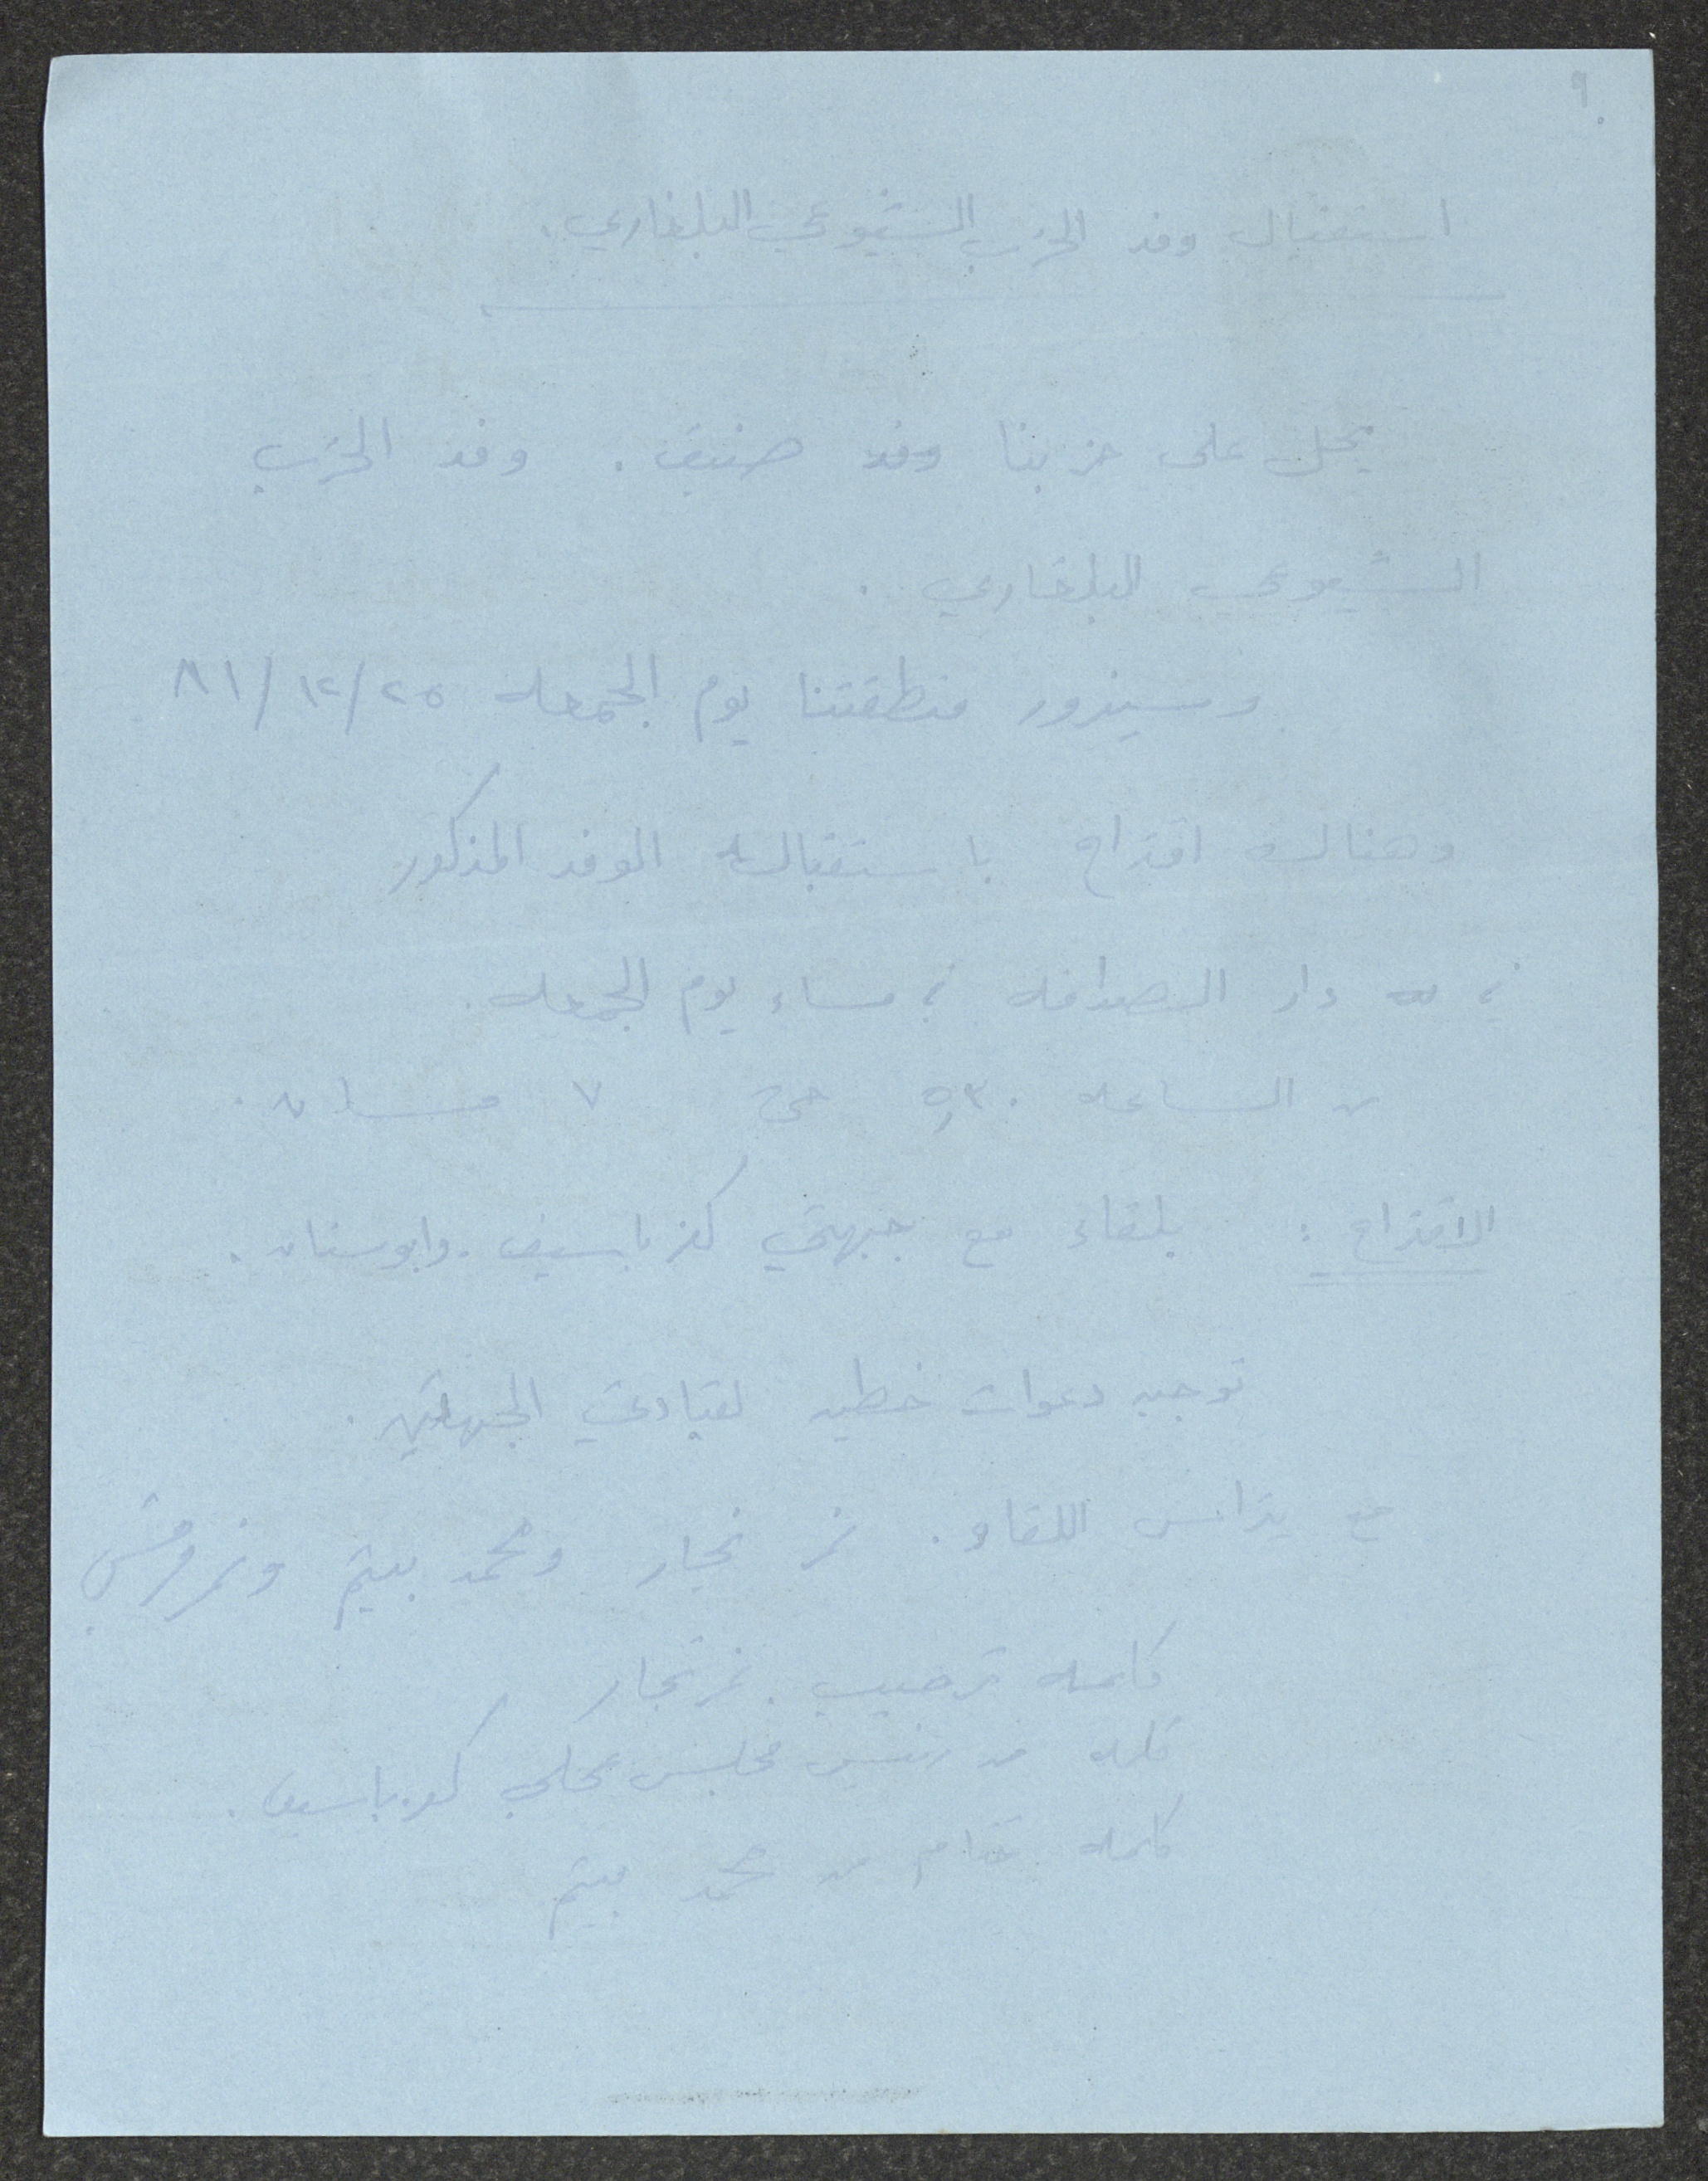 ٩
استقبال وفد الحزب الشيوعي البلغاري.
يحل على حزبنا وفد ضيف. وفد الحزب
الشيوعي البلغاري.
وسيزور منطقتنا يوم الجمعه ٢٥/١٢/٨١
وهناك اقتراح باستقبال الوفد المذكور
في دار الصداقه في مساء يوم الجمعه.
من الساعه ٥,٣٠ حتى ٧ مساء.
الاقتراح: بلقاء مع جبهتي كفر ياسيف وابوسنان.
توجيه دعوات خطيه لقيادتي الجبهتين.
يترأس اللقاء. نمر نجار ومحمد ونمر مرقس
كلمه ترحيب. نمر نجار
كلمه من رئيس مجلس محلي كفر ياسيف.
كلمه ختام من محمد